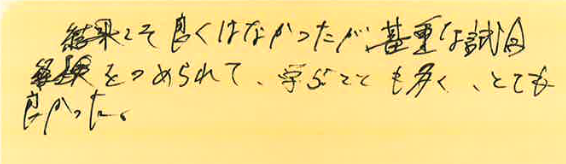 結果こそ良くはなかったが、貴重な試合
経験をつめられて、学ぶことも多く、とても
良かった。